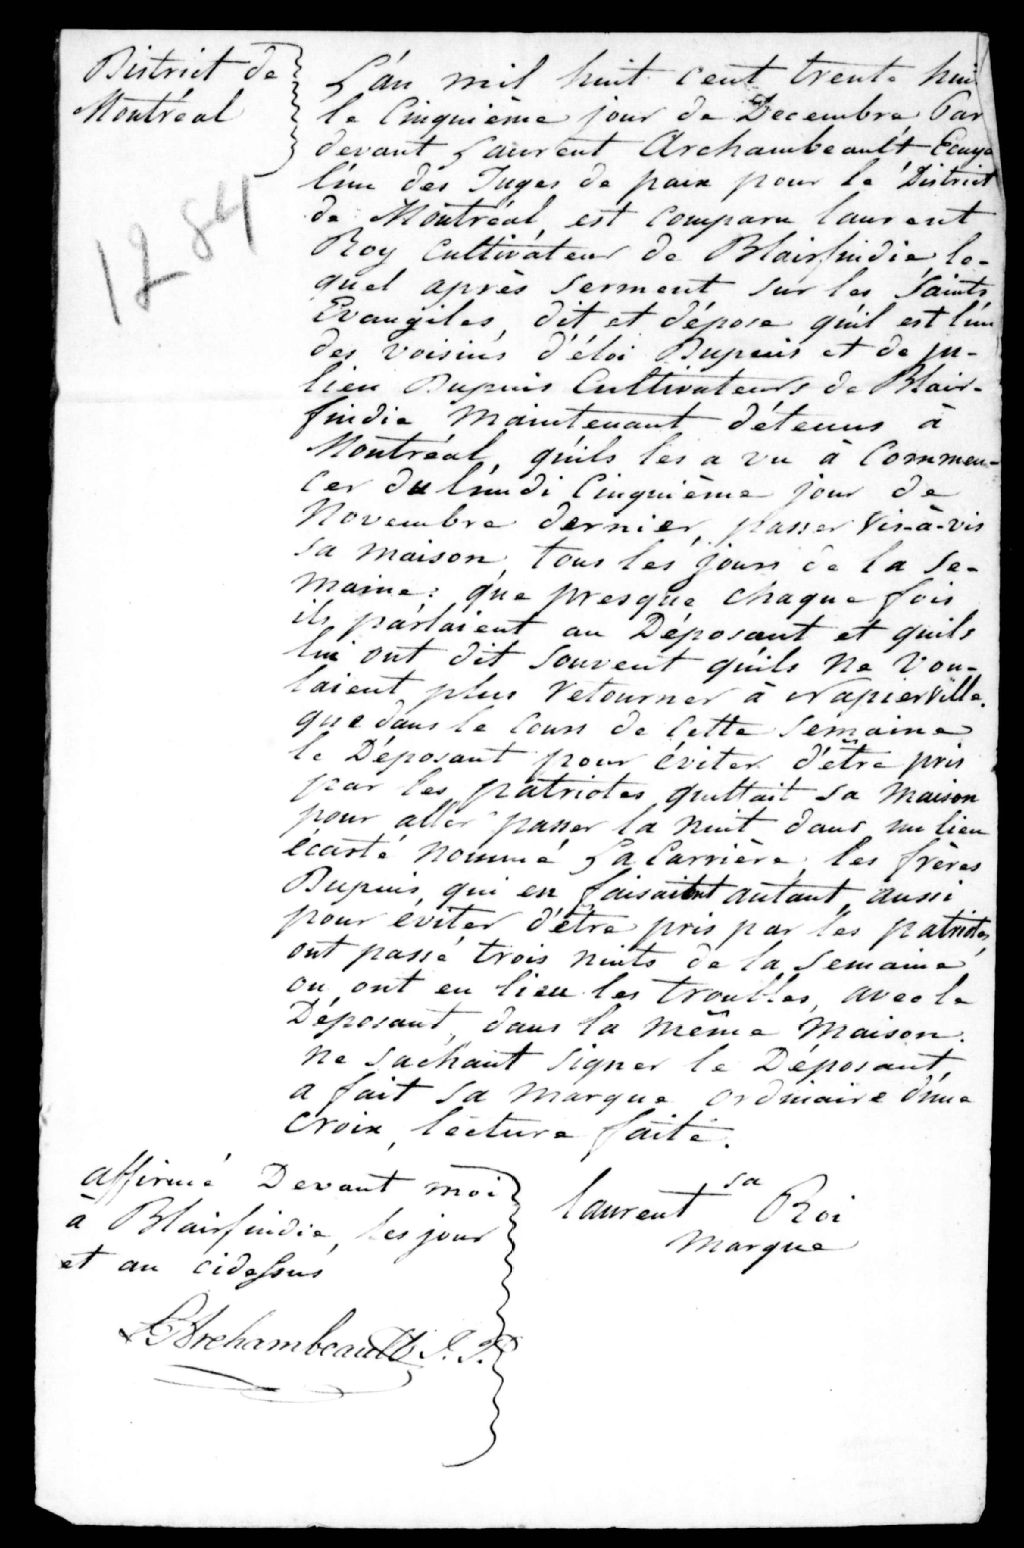 District de
Montréal
1284
L'an mil huit cent trente huit
le Cinquième jour de Decembre Par
devant Laurent Archambeault Ecuye
l'un des Juges de paix pour le District
de Montréal, est comparu laurent
Roy cultivateur de Blairfindie, le-
quel après serment sur les Saints
Evangiles, dit et dépose qu'il est l'un
des voisins d'éloi Dupuis et de Ju-
lien Dupuis Cultivateurs de Blair-
findie maintenant détenus à
Montréal, qu'ils les a vu à Commen-
cer du lundi Cinquième jour de
Novembre dernier, passer vis-à-vis
sa maison, tous les jours de la se-
maine: que presque chaque fois
ils parlaient au Déposant et qu'ils
lui ont dit souvent qu'ils ne vou-
laient plus retourner à Napierville.
que dans le cours de cette semaine
le Déposant pour éviter d'être pris
par les patriotes quittait sa maison
pour aller passer la nuit dans un lieu
écarté nommé La Carrière, les frères
Dupuis, qui en faisaient autant, aussi
pour éviter d'être pris par les patriotes,
ont passé trois nuits de la semaine
ou ont eu lieu les troubles, avec le
Déposant, dans la même maison.
ne sachant signer le Déposant,
a fait sa marque ordinaire d'une
croix, lecture faite.
affirmé Devant moi
à Blairfindie, les jour
et an cidessus
L Archambeault J. P.
sa
laurent Roi
marque